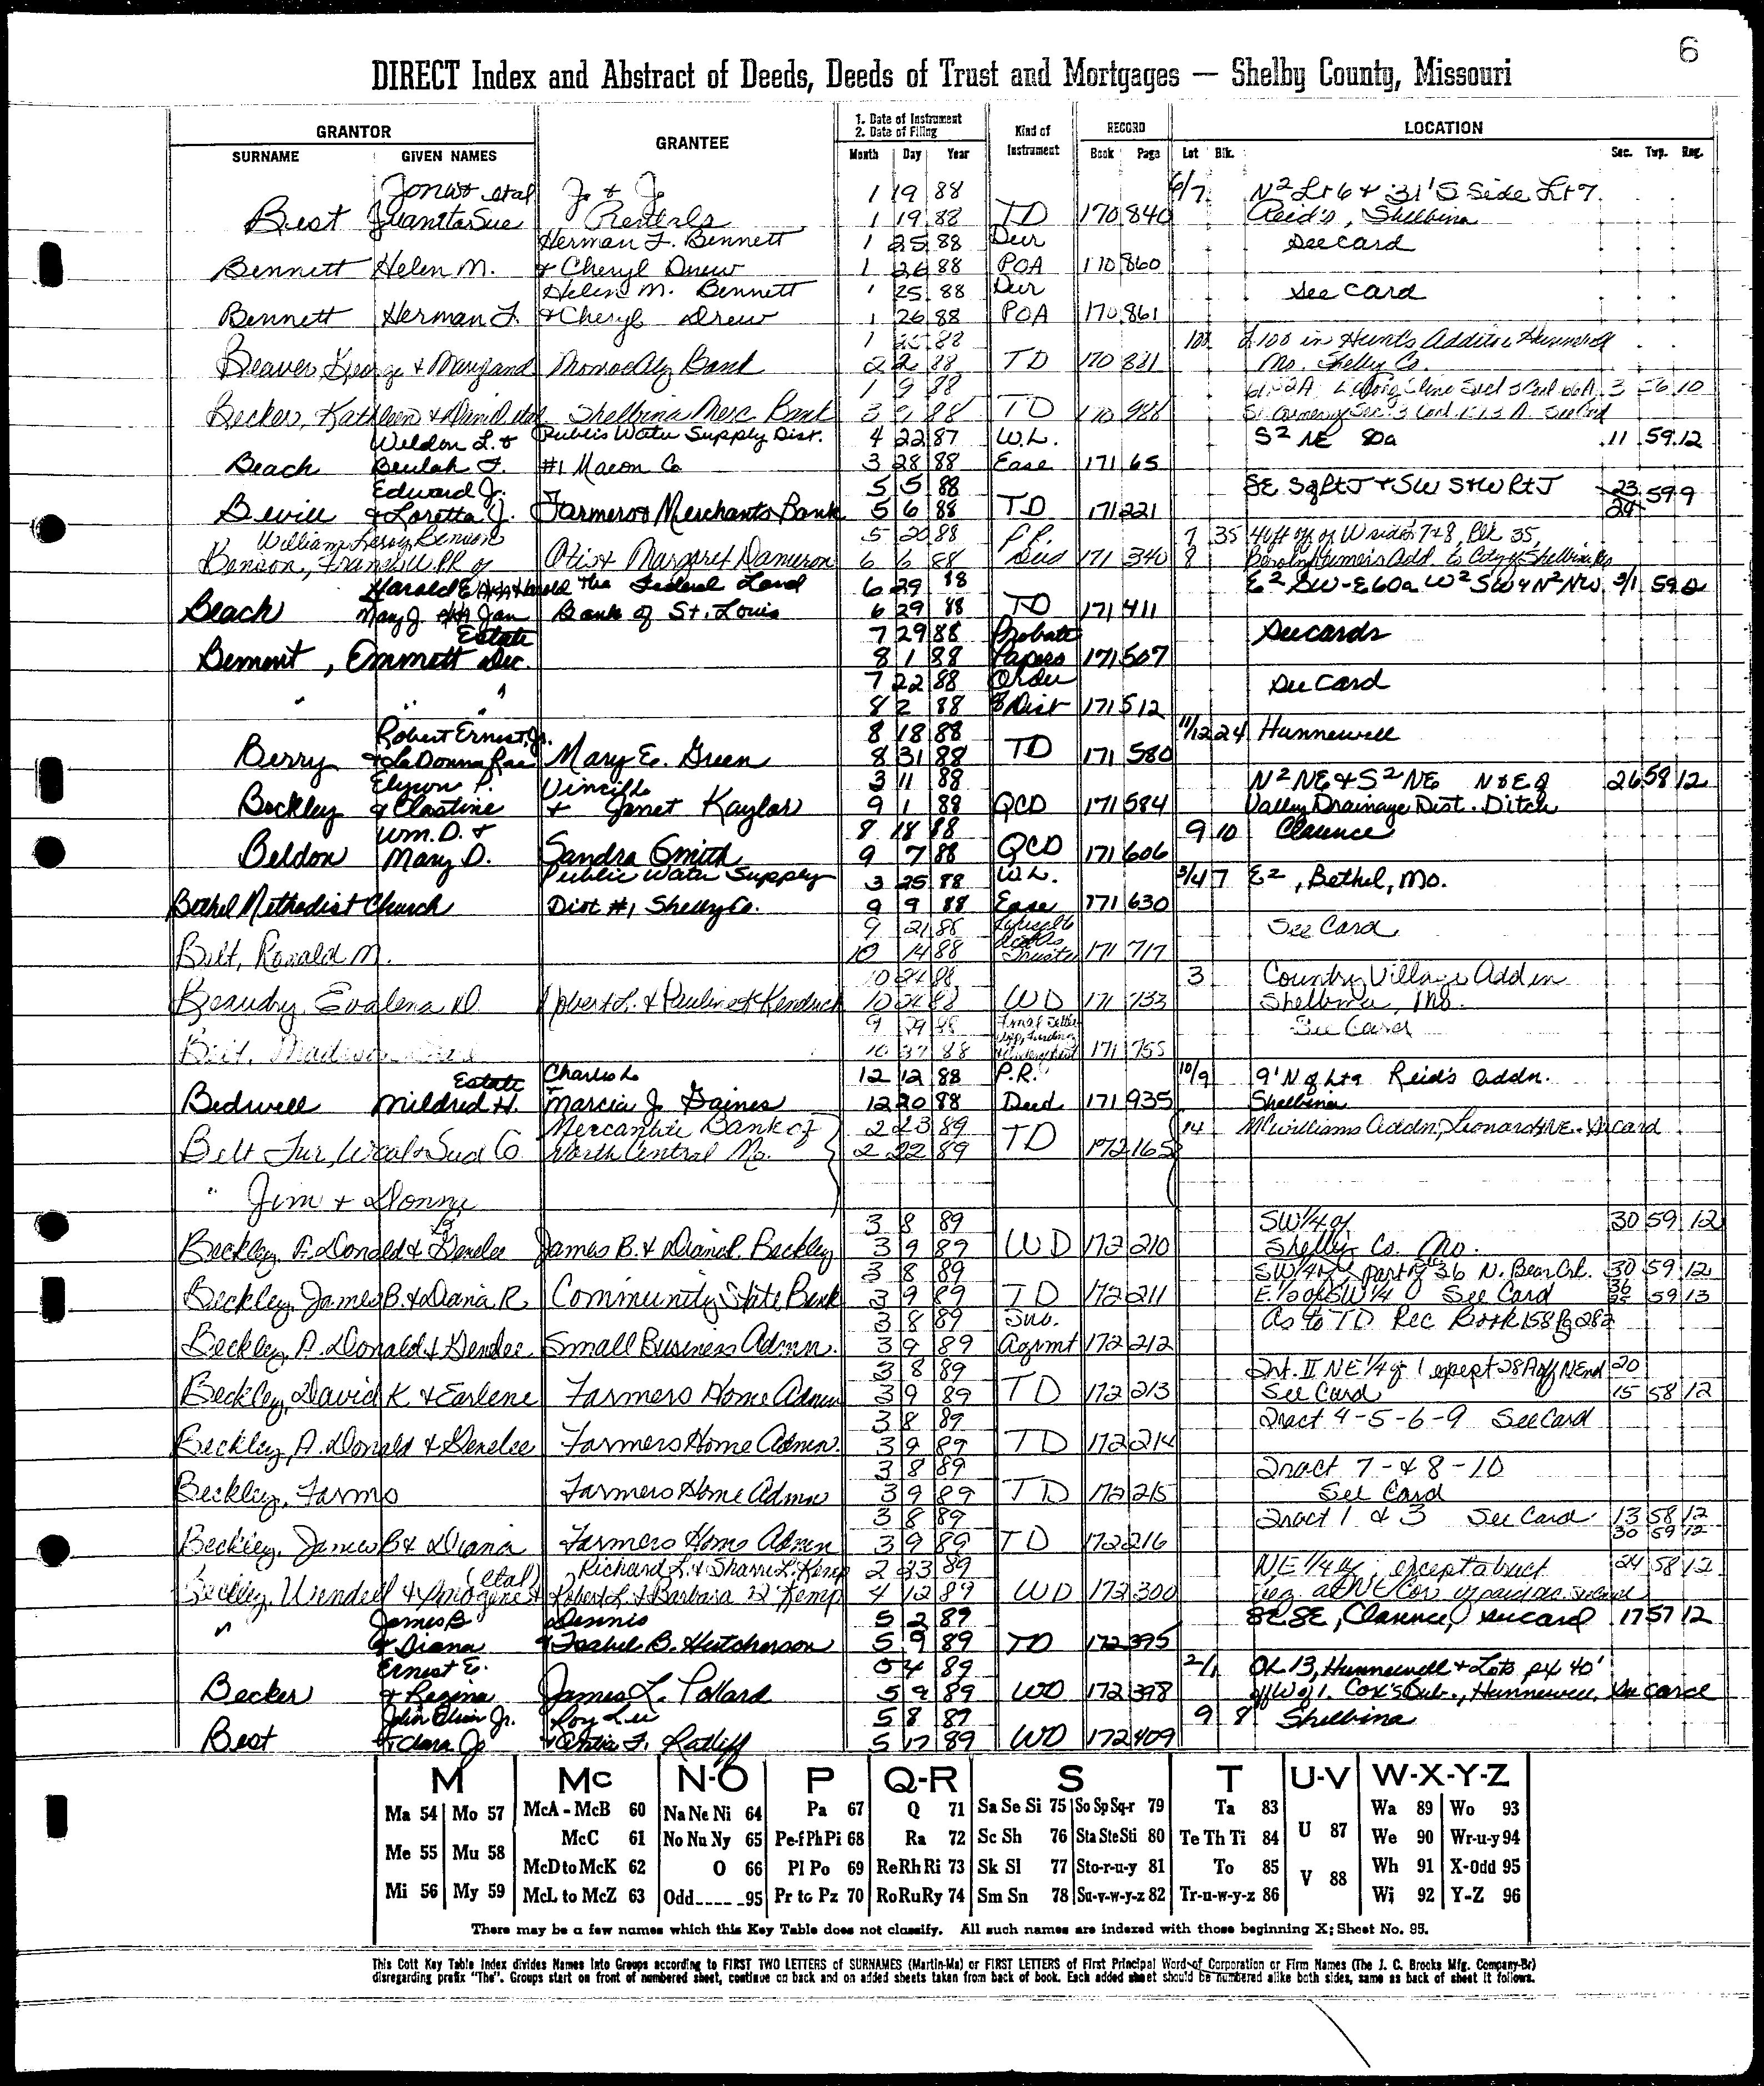 6
DIRECT Index and Abstract of Deeds, Deeds of Trust and Mortgages — Shelby County, Missouri
GRANTOR GRANTEE 1. Date of Instrument 2. Date of Filing Kind of Instrument RECORD LOCATION
SURNAME GIVEN NAMES Month Day Year Book Page Lot Blk. Sec. Twp. Rng.
Jonas etal J. & J. 1 19 88 6/7 N2 Lt 6 & 31' S Side Lt 7
Best Juanita Sue Rentals 1 19 88 TD 170 840 Reid's, Shelbina
Herman F. Bennett 1 25 88 Dur See card
Bennett Helen M. & Cheryl Drew 1 26 88 POA 170 860
Helen M. Bennett 1 25 88 Dur See card
Bennett Herman F. & Cheryl Drew 1 26 88 POA 170 861
1 88 100 L 100 in Hunts Addition Hunnewell
Beaver, George & Maryland Monroe City Bank 2 2 88 TD 170 881 Mo. Shelby Co.
1 9 88 3 56 10
Becker, Kathleen & David etal Shelbina Merc. Bank 3 88 TD 170 988 See Card
Weldon L. & Public Water Supply Dist. 4 22 87 W.L. S2 NE 80a 11 59 12
Beach Beulah F. #1 Macon Co 3 28 88 Ease 171 65
Edward J. 5 5 88 SE Sq Rt J & SW S&W Rt J 23 59 9
Bevill & Loretta J. Farmers & Merchants Bank 5 6 88 TD 171 221 24
William Leroy Benson 5 20 88 P.R. 7 35 40 ft off of W side 7&8, Blk 35,
Benson, PR of Otis & Margaret Dameron 6 6 88 Deed 171 340 8 Add. to City of Shelbina, Mo
Harold E AKA Harold The Federal Land 6 29 88 E2 SW-E60a W2 SW & N2 NW 2/1 59
Beach Mary J. AKA Jan Bank of St. Louis 6 29 88 TD 171 411
Estate 7 29 88 Probate See cards
Bement, Emmett Dec. 8 1 88 Papers 171 507
" " " 7 22 88 Order See Card
8 2 88 of Dist 171 512
Robert Ernest, Jr. 8 18 88 11/12 24 Hunnewell
Berry & LaDonna Rae Mary E. Green 8 31 88 TD 171 580
Elywn P. Vincil 3 11 88 N2 NE & S2 NE N & E of 26 58 12
Beckley & Clastine & Janet Kaylor 9 1 88 QCD 171 584 Valley Drainage Dist. Ditch
Wm. D. & 8 18 88 9 10 Clarence
Beldon Mary D. Sandra Smith 9 7 88 QCD 171 606
Public Water Supply 3 25 88 W.L. 3/4 7 E2, Bethel, Mo.
Bethel Methodist Church Dist #1, Shelby Co. 9 9 88 Ease 171 630
9 21 88 See Card
Belt, Ronald M. 10 14 88 Trustee 171 717
10 24 88 3 Country Village Addn
Beaudry, Evalena D. Robert L. & Pauline Kendrick 10 24 88 WD 171 733 Shelbina, Mo.
9 29 88 Final Settle See Card
Belt, Madison 10 88 171 755
Estate Charles L. 12 12 88 P.R. 10/9 9' N of Lt 9 Reid's addn.
Bedwell Mildred H. & Marcia J. Gaines 12 20 88 Deed 171 935 Shelbina
Mercantile Bank of 2 23 89 TD 14 McWilliams Addn, Leonard, NE. See card
Belt Fur, Wool & Seed Co North Central Mo. 2 22 89 172 165
" Jim & Donna
3 8 89 SW 1/4 of 30 59 12
Beckley, A. Donald & Gerelee James B. & Diana R. Beckley 3 9 89 WD 172 210 Shelby Co. Mo.
3 8 89 SW 1/4 & part of 36 N. Bear Crk. 30 59 12
Beckley, James B. & Diana R Community State Bank 3 9 89 TD 172 211 E. 1/2 of SW 1/4 See Card 59 13
3 8 89 Sub. As to TD Rec Book 158 Pg 282
Beckley, A. Donald & Gerelee Small Business Admn. 3 9 89 Agrmt 172 212
3 8 89 Trt. II NE 1/4 of 1 except 28A off N End 20
Beckley, David K & Earlene Farmers Home Admn 3 9 89 TD 172 213 See Card 15 58 12
3 8 89 Tract 4-5-6-9 See Card
Beckley, A. Donald & Gerelee Farmers Home Admn. 3 9 89 TD 172 214
3 8 89 Tract 7-& 8-10
Beckley, Farms Farmers Home Admn 3 9 89 TD 172 215 See Card
3 8 89 Tract 1 & 3 See Card 13 58 12
Beckley, James B & Diana Farmers Home Admn 3 9 89 TD 172 216 30 59 12
(etal) Richard L. & Sharre L. Kemp 2 23 89 NE 1/4 of, except a tract 24 58 12
Beckley, Wendell & Imogene & Robert L. & Barbara D Kemp 4 12 89 WD 172 300 beg. at NE Cor. of See Card
" James B Dennis 5 2 89 SE SE, Clarence, See card 17 57 12
& Diana & Isabel B. Hutcherson 5 9 89 TD 172 395
Ernest E. 5 4 89 2/1 OL 13, Hunnewell & Lots 2 & 40'
Becker & Regina James L. Pollard 5 9 89 WD 172 398 off W of 1. Cox's Sub., Hunnewell, See Card
John Jr. Roy Lee 5 8 89 9 8 Shelbina
Best & Clara Jo & F. Ratliff 5 17 89 WD 172 409
M Mc N-O P Q-R S T U-V W-X-Y-Z
Ma 54 Mo 57 McA - McB 60 Na Ne Ni 64 Pa 67 Q 71 Sa Se Si 75 So Sp Sq-r 79 Ta 83 U 87 Wa 89 Wo 93
Me 55 Mu 58 McC 61 No Nu Ny 65 Pe-f Ph Pi 68 Ra 72 Sc Sh 76 Sta Ste Sti 80 Te Th Ti 84 We 90 Wr-u-y 94
McD to McK 62 O 66 Pl Po 69 Re Rh Ri 73 Sk Sl 77 Sto-r-u-y 81 To 85 V 88 Wh 91 X-Odd 95
Mi 56 My 59 McL to McZ 63 Odd____95 Pr to Pz 70 Ro Ru Ry 74 Sm Sn 78 Su-v-w-y-z 82 Tr-u-w-y-z 86 Wi 92 Y-Z 96
There may be a few names which this Key Table does not classify. All such names are indexed with those beginning X; Sheet No. 95.
This Cott Key Table Index divides Names Into Groups according to FIRST TWO LETTERS of SURNAMES (Martin-Ma) or FIRST LETTERS of First Principal Word of Corporation or Firm Names (The J. C. Brooks Mfg. Company-Br)
disregarding prefix "The". Groups start on front of numbered sheet, continue on back and on added sheets taken from back of book. Each added sheet should be numbered alike both sides, same as back of sheet it follows.